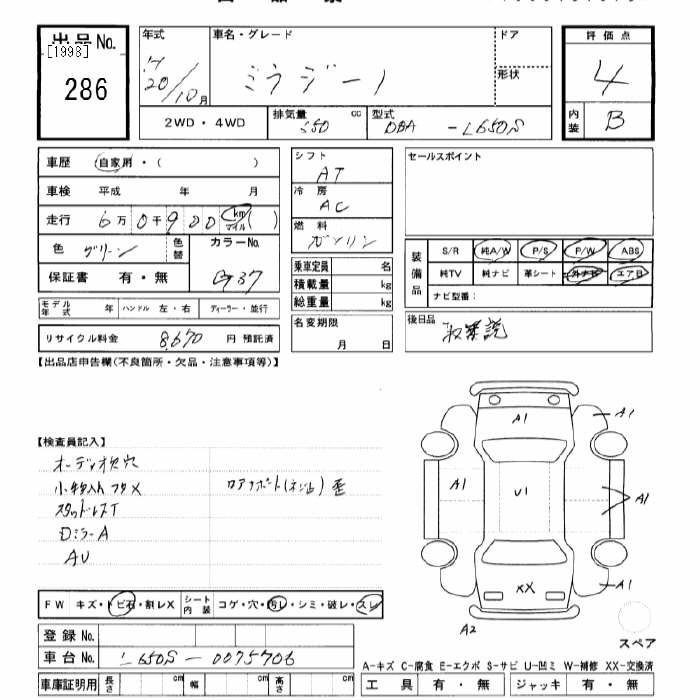 出品No.
[1993]
286
年式
H
20/10月
車名・グレード
ミラジーノ
ドア
形状
評価点
4
内装
B
2WD・4WD
排気量
650 cc
型式
DBA-L650S
車歴
自家用・( )
車検 平成 年 月
走行 6万0千900 km マイル ( )
色
グリーン
色替
カラーNo.
G37
保証書 有・無
モデル年式 年
ハンドル 左・右
ディーラー・並行
リサイクル料金 8,670 円 預託済
シフト
AT
冷房
AC
燃料
ガソリン
乗車定員 名
積載量 kg
総重量 kg
名変期限
月 日
セールスポイント
装備品
S/R 純A/W P/S P/W ABS
純TV 純ナビ 革シート 外ナビ エアB
ナビ型番：
後日品
取保説
【出品店申告欄(不良箇所・欠品・注意事項等)】
【検査員記入】
オーディオ欠穴
小物入れフタX
スタッドレスT
DミラーA
AU
ロアサポート(ネジ山)歪
A1
A1
A1
U1
A1
XX
A1
A2
スペア
FW キズ・トビ石・割レX
シート内装
コゲ・穴・汚レ・シミ・破レ・スレ
登録No.
車台No. L650S-0075706
車庫証明用 長さ cm 幅 cm 高さ cm
A-キズ C-腐食 E-エクボ S-サビ U-凹ミ W-補修 XX-交換済
工具 有・無 ジャッキ 有・無